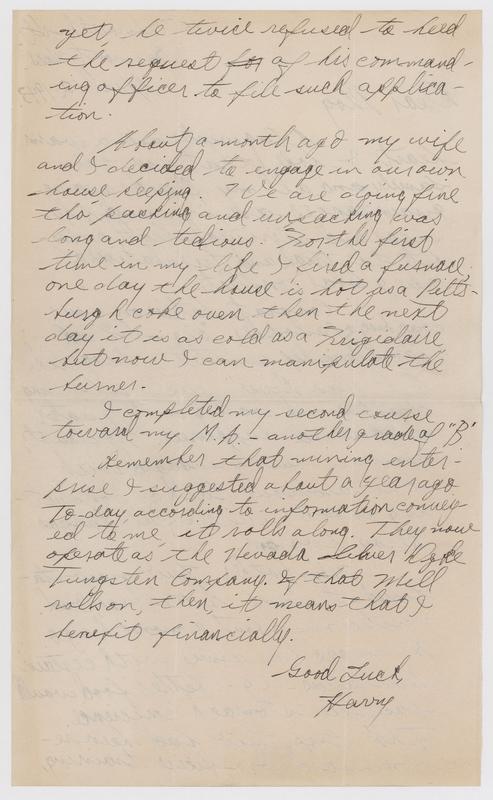 yet he twice refused to heed
the request for of his command-
ing officer to file such applica-
tion.
About a month ago my wife
and I decided to engage in our own
house keeping. We are doing fine
tho' packing and unpacking was
long and tedious. For the first
time in my life I fired a furnace.
one day the house is hot as a Pitts-
burgh coke oven then the next
day it is as cold as a Frigidaire
but now I can manipulate the
burner.
I completed my second course
toward my M.A. - another grade of "B"
Remember that mining enter-
prise I suggested about a year ago
To-day according to information convey-
ed to me, it rolls along. They now
operate as the Nevada Silver Dyke
Tungsten Company. If that Mill
rolls on, then, it means that I
benefit financially.
Good Luck,
Harry